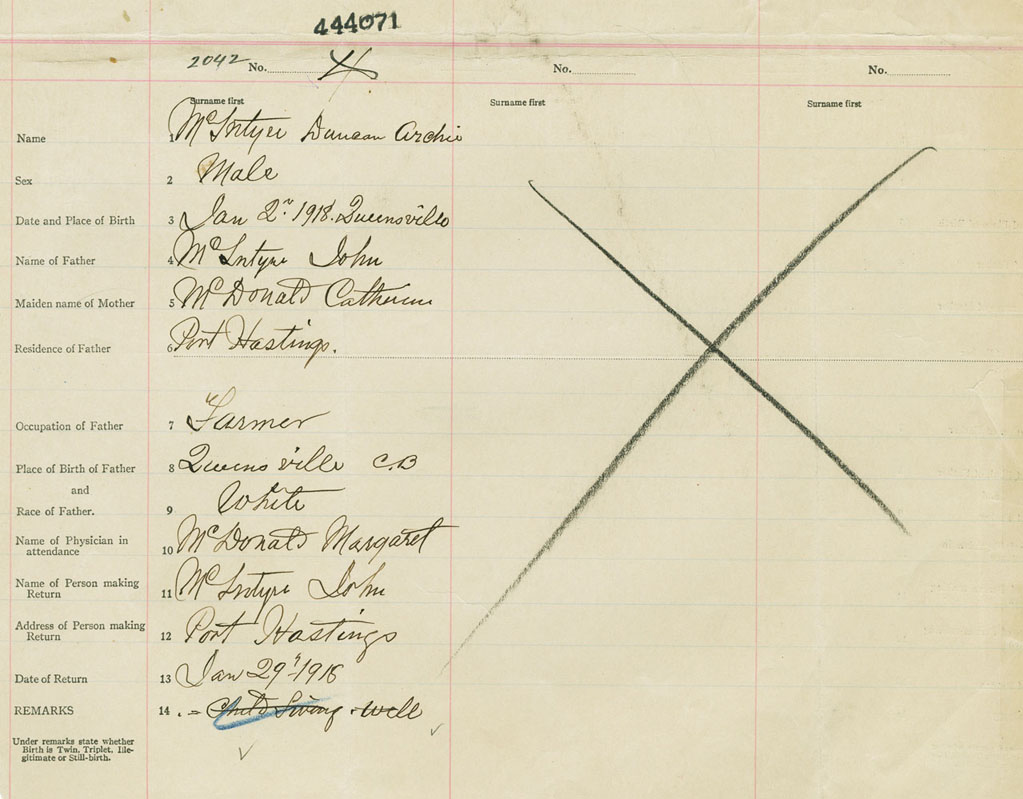 444071
2042 No. 4 No. No.
Surname first Surname first Surname first
Name 1 McIntyre Duncan Archie
Sex 2 Male
Date and Place of Birth 3 Jan 2" 1918. Queensville
Name of Father 4 McIntyre John
Maiden name of Mother 5 McDonald Catherine
Residence of Father 6 Port Hastings.
Occupation of Father 7 Farmer
Place of Birth of Father 8 Queensville C.B
and
Race of Father. 9 White
Name of Physician in
attendance 10 McDonald Margaret
Name of Person making
Return 11 McIntyre John
Address of Person making
Return 12 Port Hastings
Date of Return 13 Jan 29" 1918
REMARKS 14 . = Child Living & Well
Under remarks state whether
Birth is Twin, Triplet, Ille-
gitimate or Still-birth.